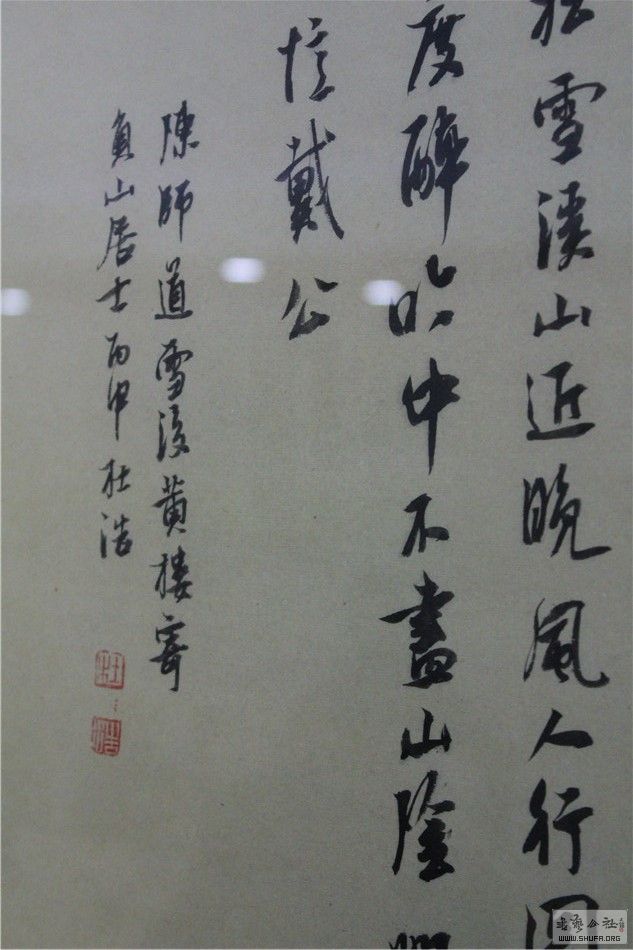 松雪溪山近晚風人行
度醉吟中不盡山陰
憶戴公
陳師道雪後黃樓寄
負山居士丙申杜浩
書藝公社
WWW.SHUFA.ORG